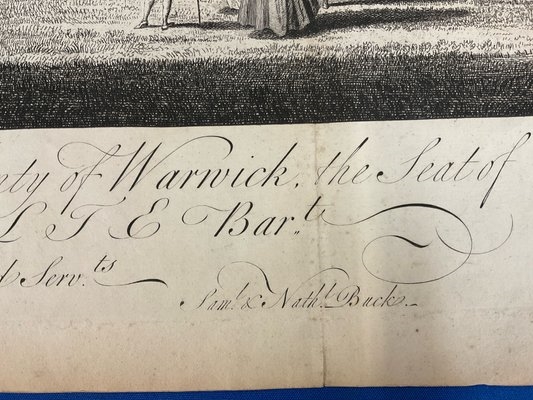 nty of Warwick, the Seat of
L T E Bar.t
d Serv.ts
Sam.l & Nath.l Buck.